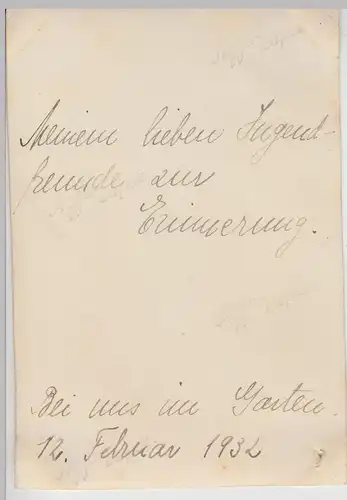 Meinem lieben Jugend-
freunde zur
Erinnerung.
Bei uns im Garten.
12. Februar 1932